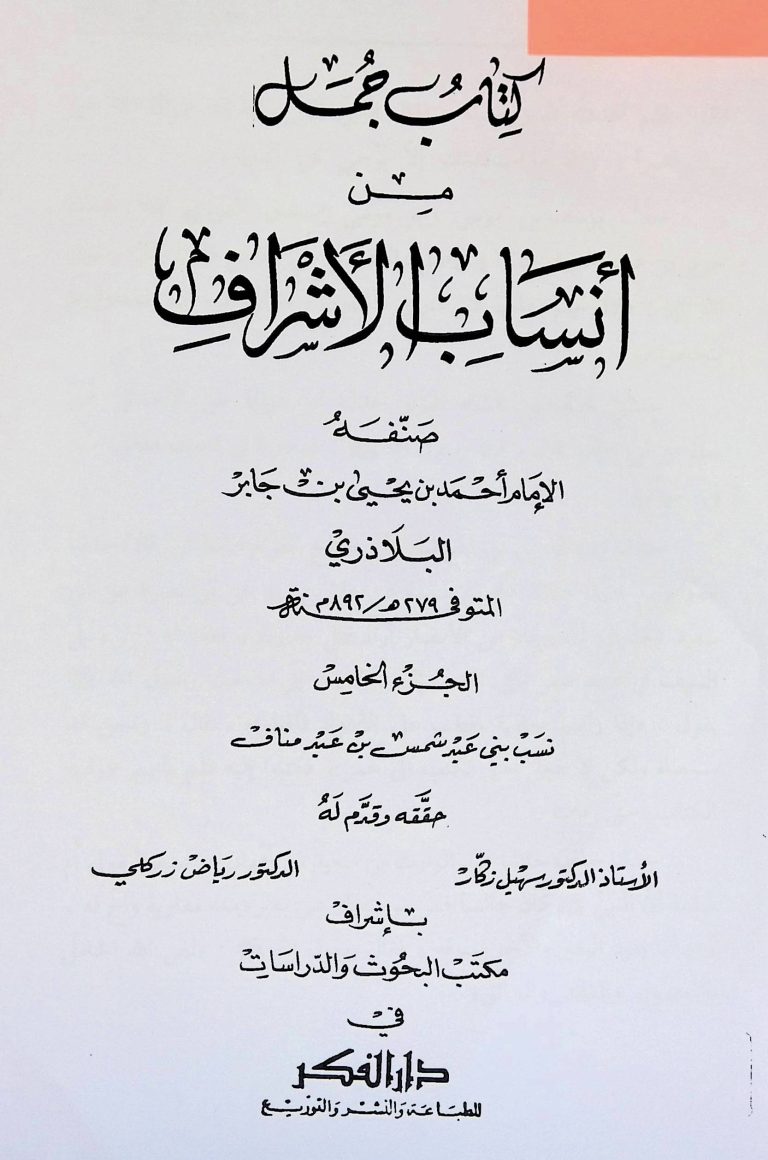 كِتَابُ جُمَل
مِن
أَنسَابِ الأَشْرَافِ
صَنَّفَهُ
الإمَام أحْمَد بن يحْيىٰ بن جَابر
البَلَاذري
المتوفى ٢٧٩هـ/٨٩٢م
الجُزْء الخامِسْ
نسَبْ بني عَبْد شمسْ بن عَبْد منافْ
حقَّقه وقدَّم لَهُ
الأستاذ الدكتور سهيل زكّار
الدكتور ريَاض زركلي
بإشراف
مكتَبْ البحُوث وَالدّراسَاتِ
في
دار الفكر
للطبَاعَة وَالنّشر وَالتّوزيع